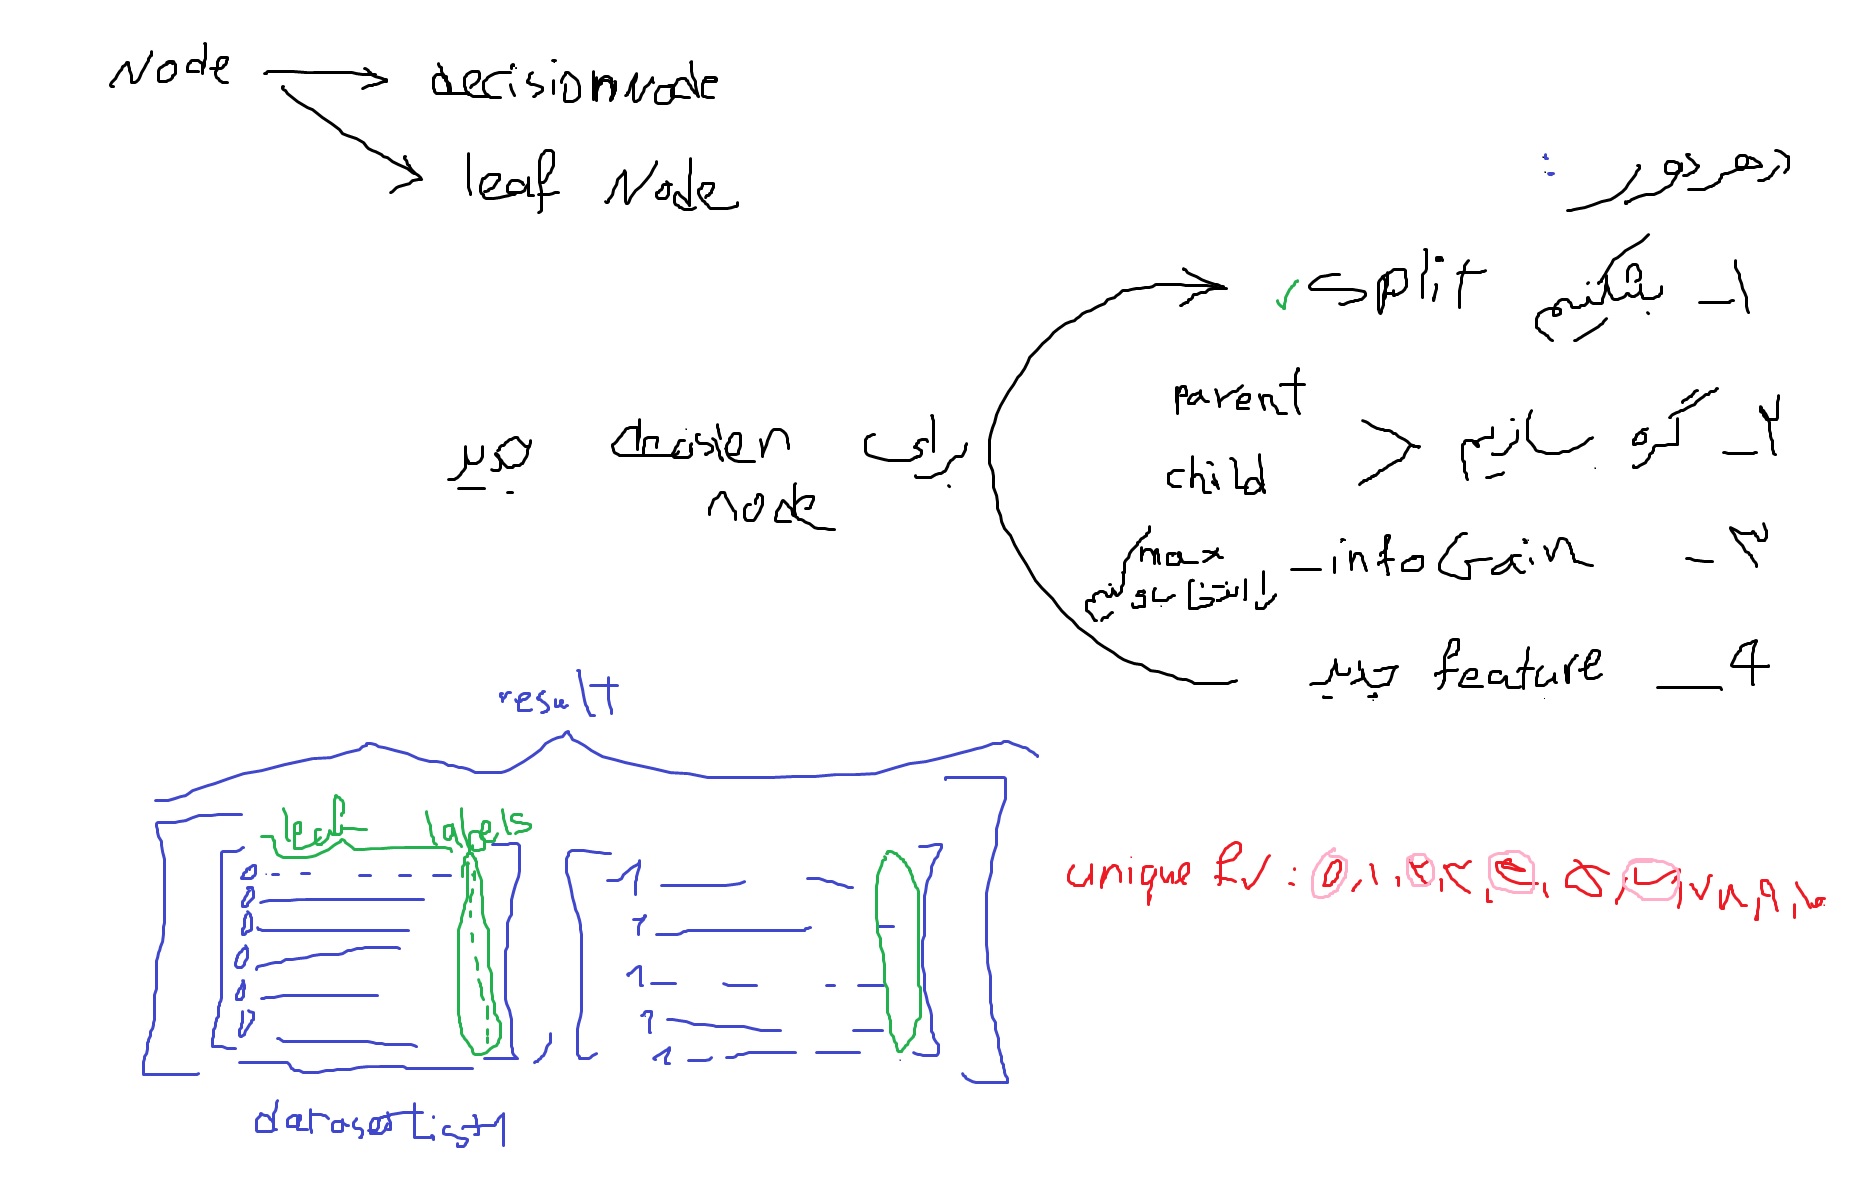 Node → decisionNode
leaf Node
در هر دور :
۱ـ بشکنیم split ✓
۲ـ گره سازیم > parent
child
۳ـ infoGain - max را انتخاب می‌کنیم
4ـ feature جدید
برای decision node جدید
result
leaf labels
0
0
0
0
0
0
,
1
1
1
1
1
datasetList1
unique fv : 0,۱,۲,۳,۴,۵,۶,۷,۸,۹,۱۰